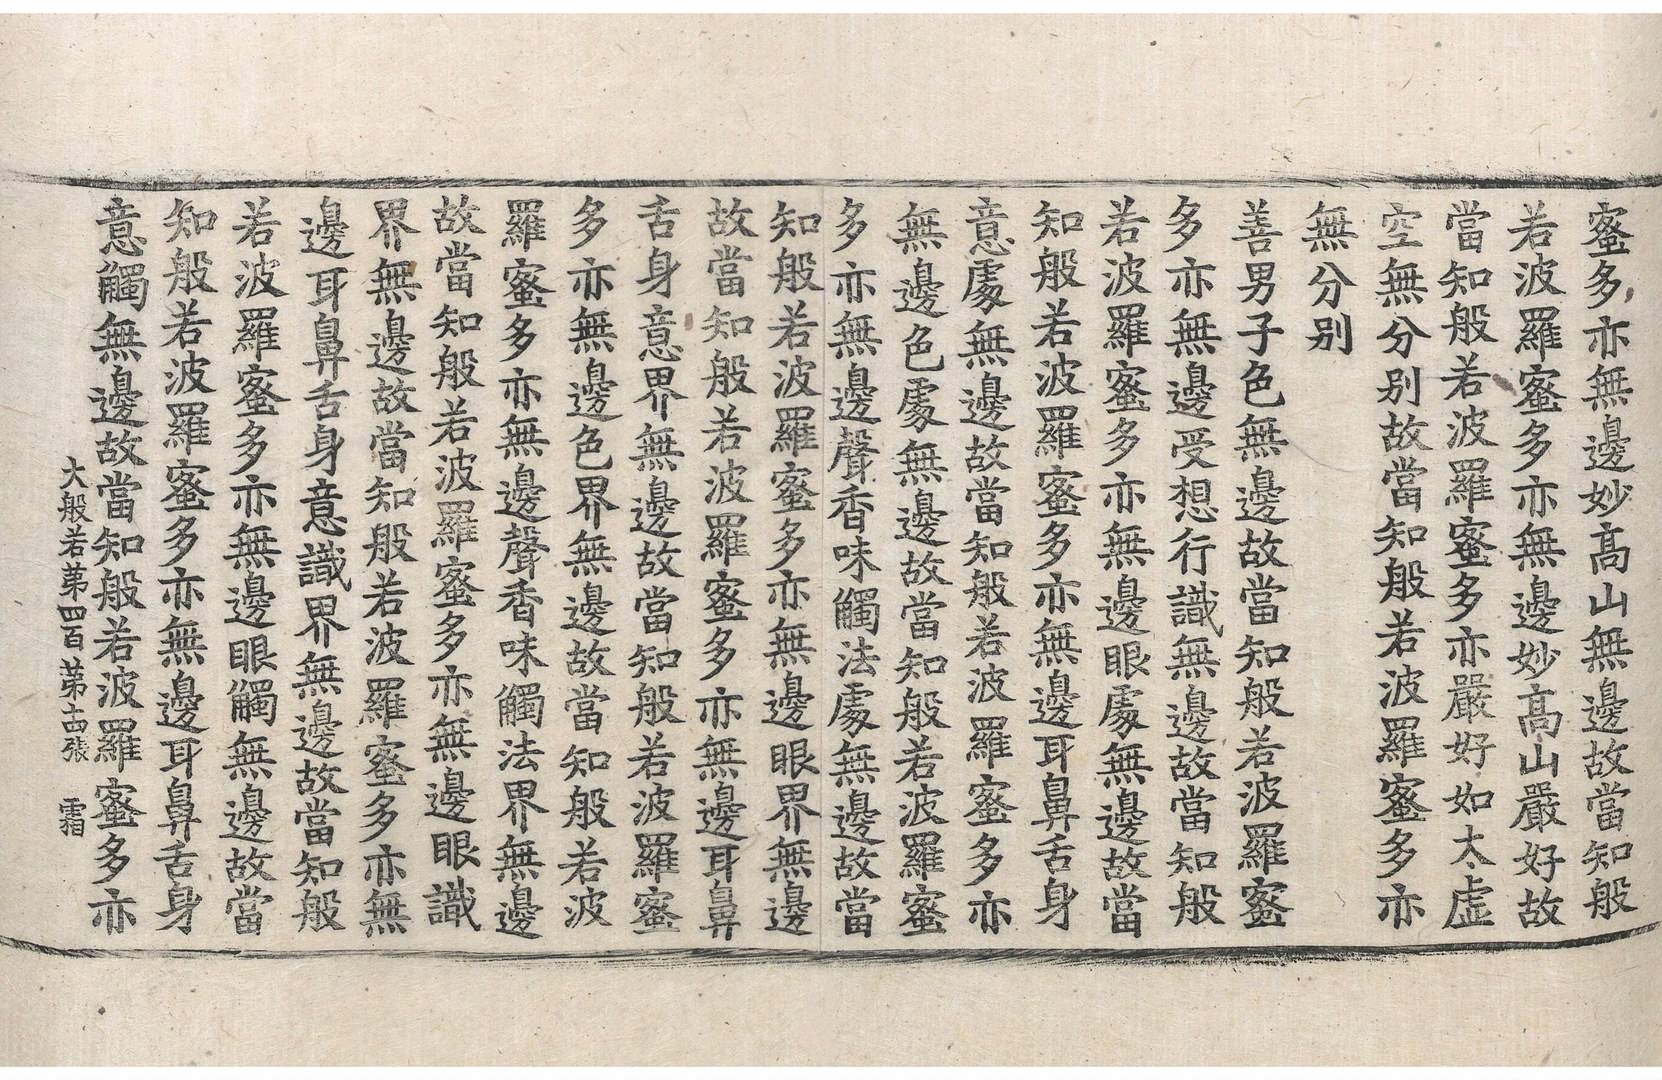 蜜多亦無邊妙高山無邊故當知般
若波羅蜜多亦無邊妙高山嚴好故
當知般若波羅蜜多亦嚴好如太虛
空無分別故當知般若波羅蜜多亦
無分別
善男子色無邊故當知般若波羅蜜
多亦無邊受想行識無邊故當知般
若波羅蜜多亦無邊眼處無邊故當
知般若波羅蜜多亦無邊耳鼻舌身
意處無邊故當知般若波羅蜜多亦
無邊色處無邊故當知般若波羅蜜
多亦無邊聲香味觸法處無邊故當
知般若波羅蜜多亦無邊眼界無邊
故當知般若波羅蜜多亦無邊耳鼻
舌身意界無邊故當知般若波羅蜜
多亦無邊色界無邊故當知般若波
羅蜜多亦無邊聲香味觸法界無邊
故當知般若波羅蜜多亦無邊眼識
界無邊故當知般若波羅蜜多亦無
邊耳鼻舌身意識界無邊故當知般
若波羅蜜多亦無邊眼觸無邊故當
知般若波羅蜜多亦無邊耳鼻舌身
意觸無邊故當知般若波羅蜜多亦
大般若第四百第十四張 霜